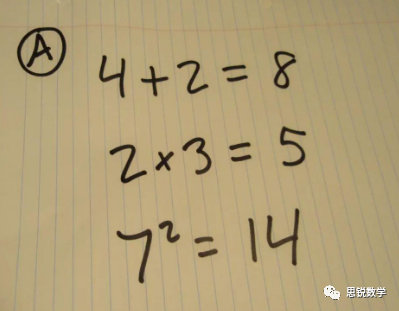 A
4 + 2 = 8
2 × 3 = 5
7² = 14
思锐数学